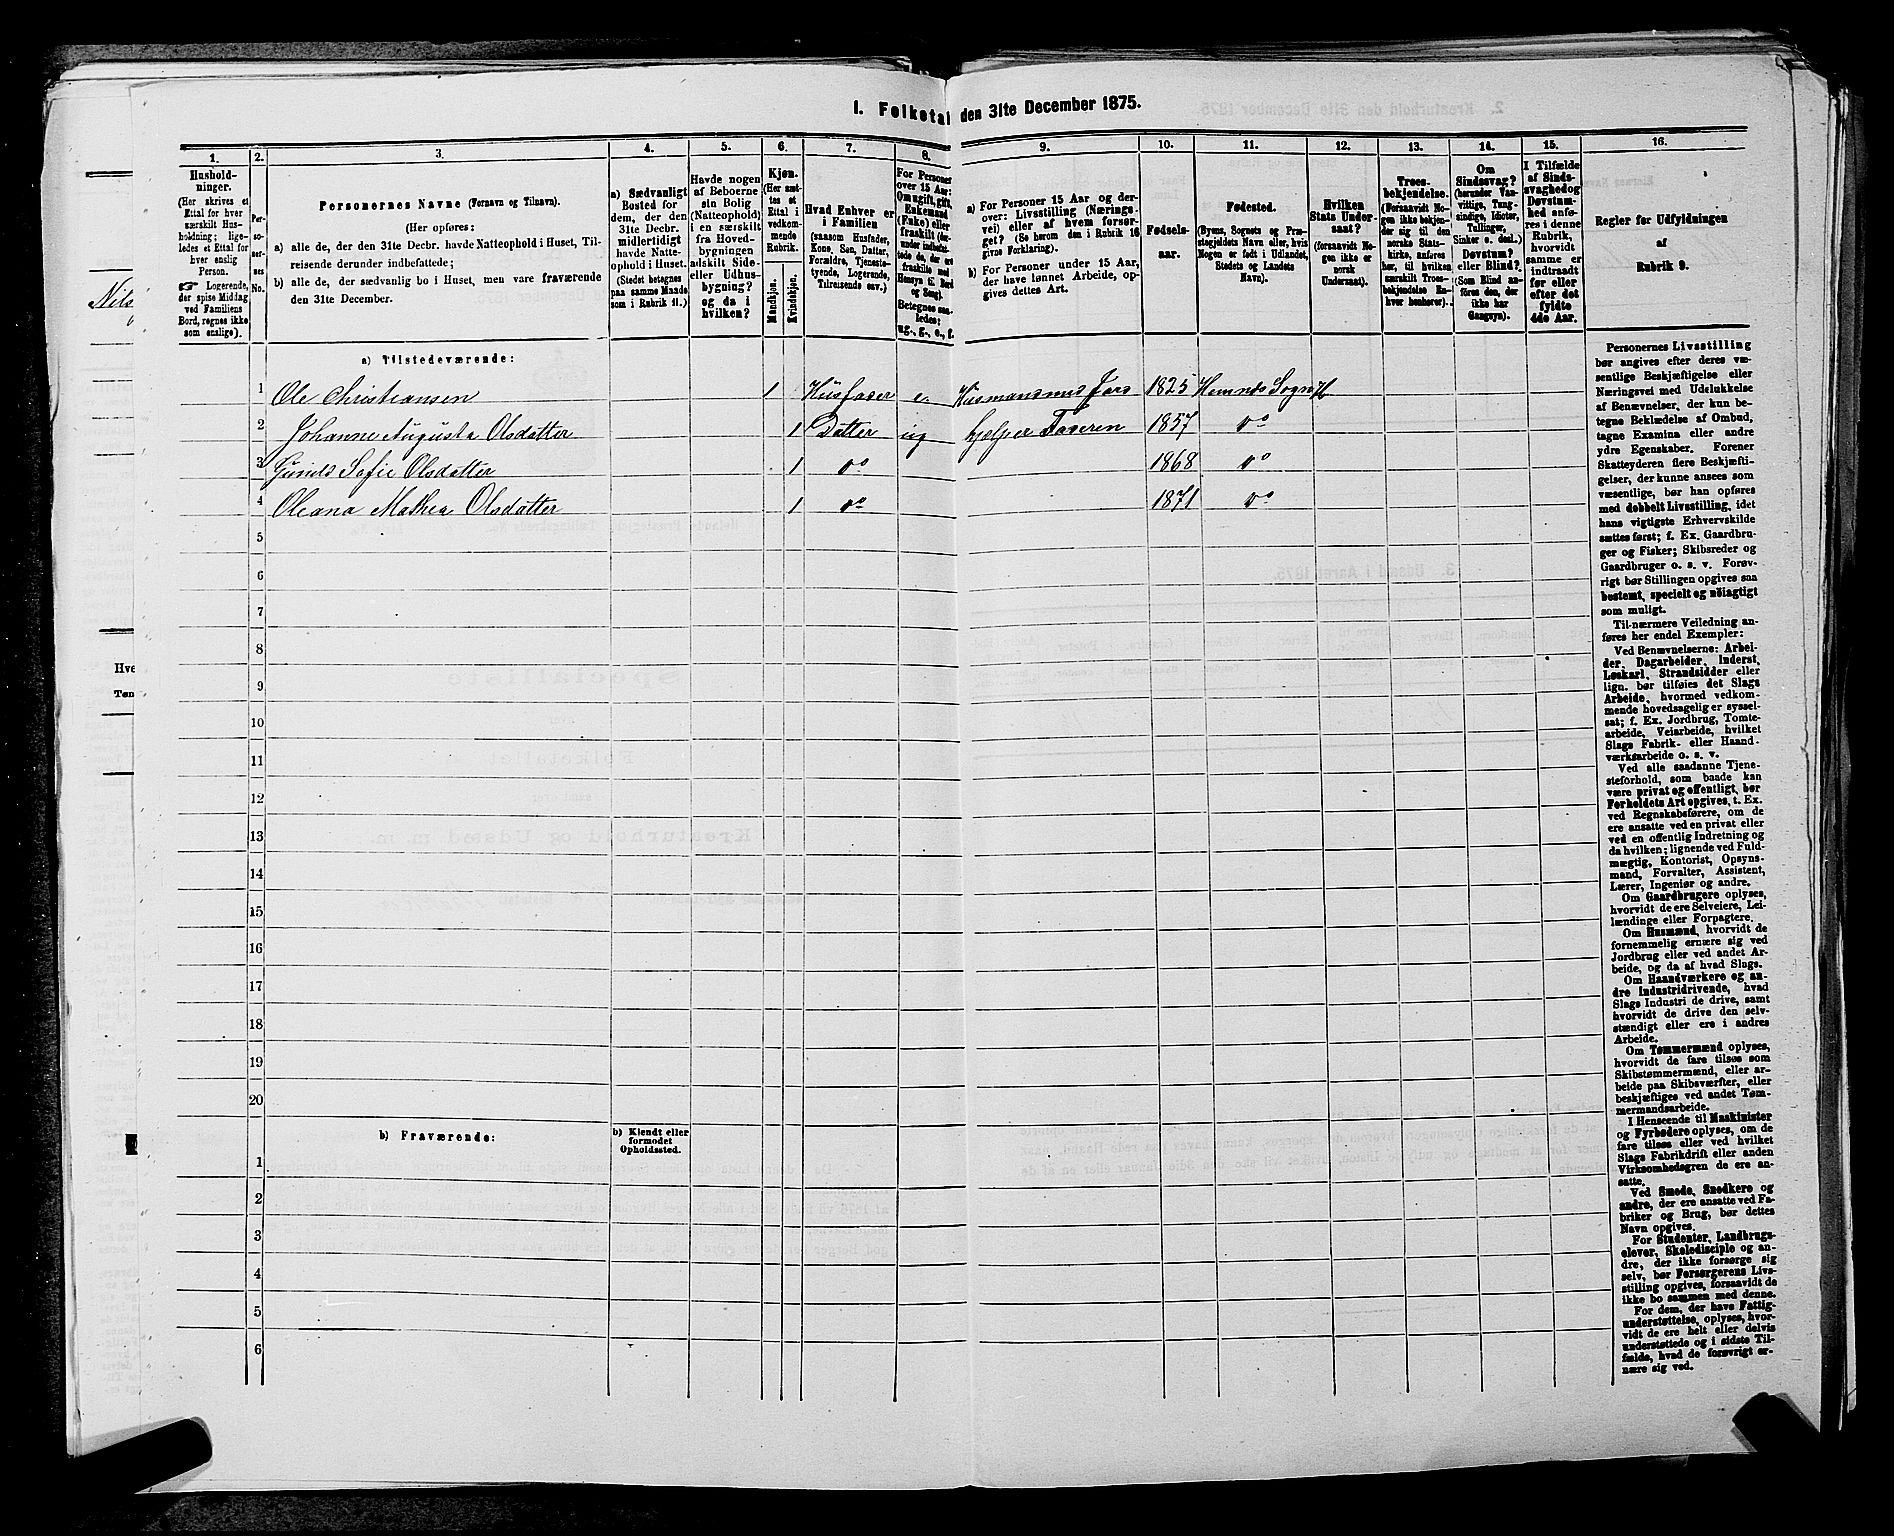 I. Folketal den 31te December 1875.
1. 2. 3. 4. 5. 6. 7. 8. 9. 10. 11. 12. 13. 14. 15. 16.
Hushold-
ninger.
(Her skrives et
Ettal for hver
særskilt Hus-
holdning; lige-
ledes et Ettal for
hver enslig
Person.
☛ Logerende,
der spise Middag
ved Familiens
Bord, regnes ikke
som enslige).
Per-
so-
ner-
nes
No.
Personernes Navne (Fornavn og Tilnavn).
(Her opføres:
a) alle de, der den 31te Decbr. havde Natteophold i Huset, Til-
reisende derunder indbefattede;
b) alle de, der sædvanlig bo i Huset, men vare fraværende
den 31te December.
a) Sædvanligt
Bosted for
dem, der den
31te Decbr.
midlertidigt
havde Natte-
ophold i Huset.
(Stedet betegnes
paa samme Maade
som i Rubrik 11.)
Havde nogen
af Beboerne
sin Bolig
(Natteophold)
i en særskilt
fra Hoved-
bygningen
adskilt Side-
eller Udhus-
bygning?
og da i
hvilken?
Kjøn.
(Her sæt-
tes et
Ettal i
vedkom-
mende
Rubrik.
Mandkjøn.
Kvindekjøn.
Hvad Enhver er
i Familien
(saasom Husfader,
Kone, Søn, Datter,
Forældre, Tjeneste-
tyende, Logerende,
Tilreisende osv.)
For Personer
over 15 Aar:
Om ugift, gift,
Enkemand
(Enke) eller
fraskilt (her-
under indbefat-
tede de, der ere
fraskilte med
Hensyn til Bord
og Seng).
Betegnes saa-
ledes:
ug., g., e., f.
a) For Personer 15 Aar og der-
over: Livsstilling (Nærings-
vei) eller af hvem forsør-
get? (Se herom den i Rubrik 16
givne Forklaring).
b) For Personer under 15 Aar,
der have lønnet Arbeide, op-
gives dettes Art.
Fødsels-
aar.
Fødested.
(Byens, Sognets og Præ-
stegjeldets Navn eller, hvis
Nogen er født i Udlandet,
Stedets og Landets
Navn).
Hvilken
Stats Under-
saat?
(forsaavidt No-
gen ikke er
norsk
Undersaat).
Troes-
bekjendelse.
(Forsaavidt No-
gen ikke bekjen-
der sig til den
norske Stats-
kirke, anføres
her, til hvilken
særskilt Troes-
bekjendelse En-
hver henhører).
Om
Sindssvag?
(herunder Van-
vittige, Tung-
sindige, Idioter,
Tullinger,
Sinker o. desl.)
Døvstum?
eller Blind?
(Som Blind an-
føres den, der
ikke har
Gangsyn).
I Tilfælde
af Sinds-
svaghed og
Døvstum-
hed anfø-
res i denne
Rubrik,
hvorvidt
samme er
indtraadt
før eller
efter det
fyldte
4de Aar.
Regler for Udfyldningen
af
Rubrik 9.
a) Tilstedeværende:
1 Ole Christiansen 1 Husfader e. Husmand med Jord 1825 Hemnes Sogn
2 Johanne Augusta Olsdatter 1 Datter ug hjelper Faderen 1857 do
3 Sofie Olsdatter 1 do 1868 do
4 Oleana Mathea Olsdatter 1 do 1871 do
5
6
7
8
9
10
11
12
13
14
15
16
17
18
19
20
b) Fraværende:
b) Kjendt eller
formodet
Opholdssted.
1
2
3
4
5
6
Personernes Livsstilling
bør angives efter deres væ-
sentlige Beskjæftigelse eller
Næringsvei med Udelukkelse
af Benævnelser, der kun be-
tegne Beklædelse af Ombud,
tagne Examina eller andre
ydre Egenskaber. Forener
Skatteyderen flere Beskjæfti-
gelser, der kunne ansees som
væsentlige, bør han opføres
med dobbelt Livsstilling, idet
hans vigtigste Erhvervskilde
sættes først; f. Ex. Gaardbru-
ger og Fisker; Skibsreder og
Gaardbruger o. s. v. Forøv-
rigt bør Stillingen opgives saa
bestemt, specielt og nøiagtigt
som muligt.
Til nærmere Veiledning an-
føres her endel Exempler:
Ved Benævnelserne: Arbei-
der, Dagarbeider, Inderst,
Løskarl, Strandsidder eller
lign. bør tilføies det Slags
Arbeide, hvormed vedkom-
mende hovedsagelig er syssel-
sat; f. Ex. Jordbrug, Tomte-
arbeide, Veiarbeide, hvilket
Slags Fabrik- eller Haand-
værksarbeide o. s. v.
Ved alle saadanne Tjene-
steforhold, som baade kan
være privat og offentligt, bør
Forholdets Art opgives, t. Ex.
ved Regnskabsførere, om de
ere ansatte ved en privat eller
ved en offentlig Indretning og
da hvilken; lignende ved Fuld-
mægtig, Kontorist, Opsyns-
mand, Forvalter, Assistent,
Lærer, Ingeniør og andre.
Om Gaardbrugere oplyses,
hvorvidt de ere Selveiere, Lei-
lændinge eller Forpagtere.
Om Husmænd, hvorvidt de
fornemmelig ernære sig ved
Jordbrug eller ved andet Ar-
beide, og da af hvad Slags.
Om Haandværkere og an-
dre Industridrivende, hvad
Slags Industri de drive, samt
hvorvidt de drive den selv-
stændigt eller ere i andres
Arbeide.
Om Tømmermænd oplyses,
hvorvidt de fare tilsøs som
Skibstømmermænd, eller ar-
beide paa Skibsværfter, eller
beskjæftiges ved andet Tøm-
mermandsarbeide.
I Henseende til Maskinister
og Fyrbødere oplyses, om de
fare tilsøs eller ved hvilket
Slags Fabrikdrift eller anden
Virksomhedsgren de ere an-
satte.
Ved Smede, Snedkere og
andre, der ere ansatte ved Fa-
briker og Brug, bør dettes
Navn opgives.
For Studenter, Landbrugs-
elever, Skoledisciple og an-
dre, der ikke forsørge sig
selv, bør Forsørgerens Livs-
stilling opgives, forsaavidt de
ikke bo sammen med denne.
For dem, der have Fattig-
understøttelse, oplyses, hvor-
vidt de ere helt eller delvis
understøttede og i sidste Til-
fælde, hvad de forøvrigt er-
nære sig ved.